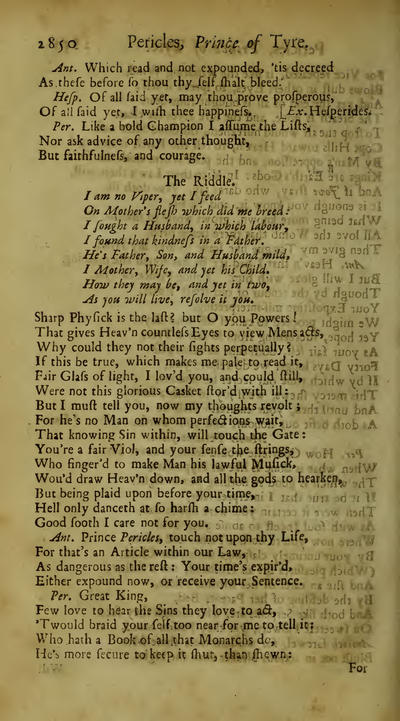 2850 Pericles, Prince of Tyre.
Ant. Which read and not expounded, 'tis decreed
As theſe before ſo thou thy ſelf ſhalt bleed.
Heſp. Of all ſaid yet, may thou prove proſperous,
Of all ſaid yet, I wiſh thee happineſs. [Ex. Heſperides.
Per. Like a bold Champion I aſſume the Liſts,
Nor ask advice of any other thought,
But faithfulneſs, and courage.
The Riddle.
I am no Viper, yet I feed
On Mother's fleſh which did me breed:
I ſought a Husband, in which labour,
I found that kindneſs in a Father.
He's Father, Son, and Husband mild,
I Mother, Wife, and yet his Child.
How they may be, and yet in two,
As you will live, reſolve it you.
Sharp Phyſick is the laſt? but O you Powers!
That gives Heav'n countleſs Eyes to view Mens acts,
Why could they not their ſights perpetually?
If this be true, which makes me pale to read it,
Fair Glaſs of light, I lov'd you, and could ſtill,
Were not this glorious Casket ſtor'd with ill:
But I muſt tell you, now my thoughts revolt;
For he's no Man on whom perfections wait,
That knowing Sin within, will touch the Gate:
You're a fair Viol, and your ſenſe the ſtrings,
Who finger'd to make Man his lawful Muſick,
Wou'd draw Heav'n down, and all the gods to hearken,
But being plaid upon before your time,
Hell only danceth at ſo harſh a chime:
Good ſooth I care not for you.
Ant. Prince Pericles, touch not upon thy Life,
For that's an Article within our Law,
As dangerous as the reſt: Your time's expir'd,
Either expound now, or receive your Sentence.
Per. Great King,
Few love to hear the Sins they love to act,
'Twould braid your ſelf too near for me to tell it:
Who hath a Book of all that Monarchs do,
He's more ſecure to keep it ſhut, than ſhewn:
For